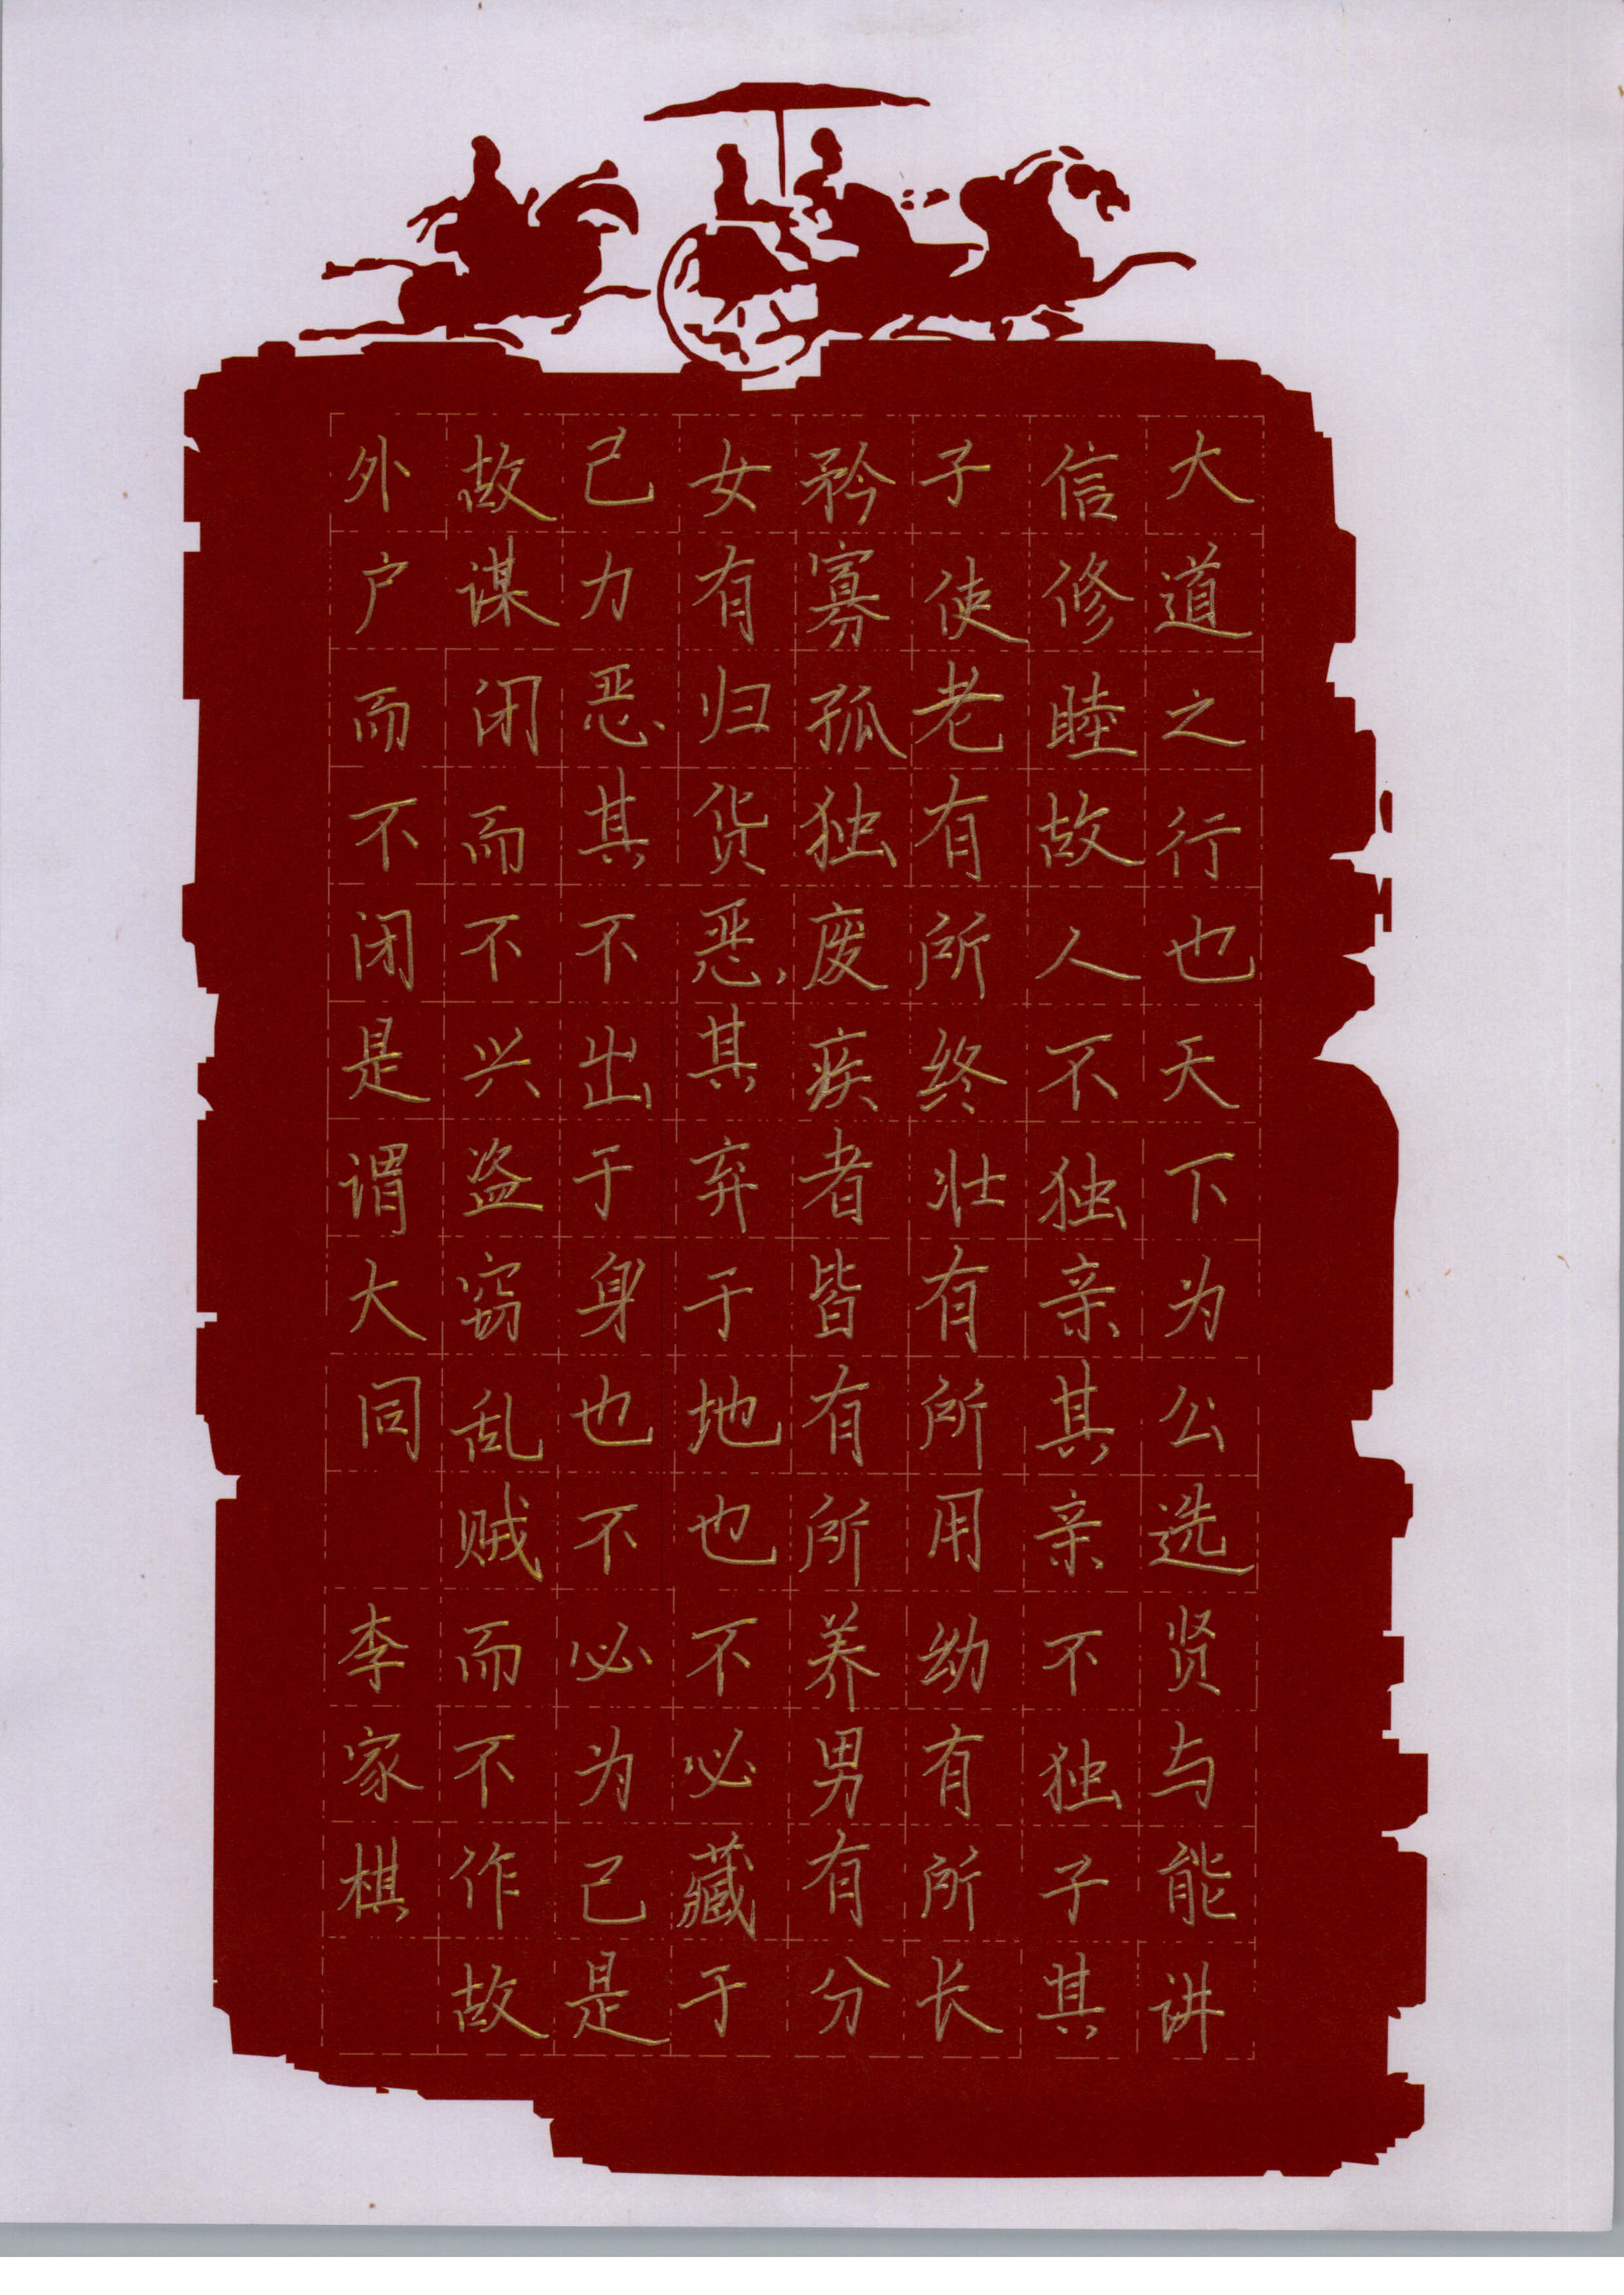 大道之行也天下为公选贤与能讲
信修睦故人不独亲其亲不独子其
子使老有所终壮有所用幼有所长
矜寡孤独废疾者皆有所养男有分
女有归货恶其弃于地也不必藏于
己力恶其不出于身也不必为己是
故谋闭而不兴盗窃乱贼而不作故
外户而不闭是谓大同 李家棋